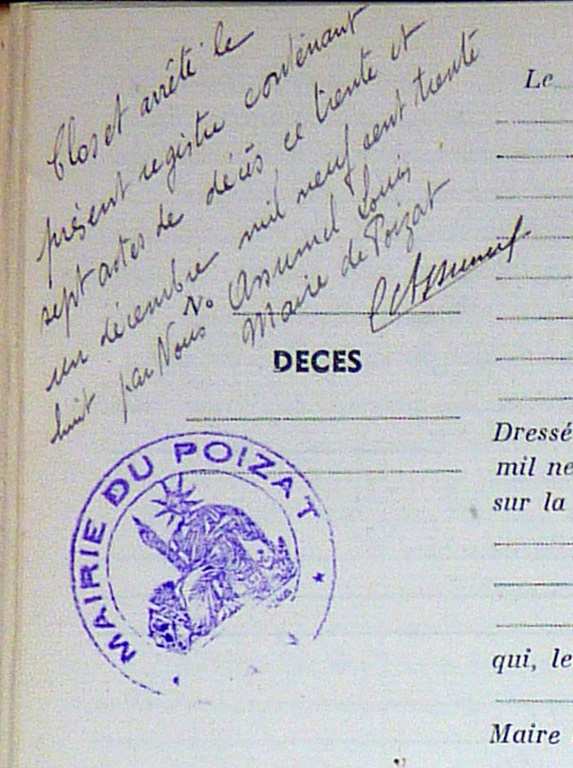 Clos et arrêté le
présent registre contenant
sept actes de décès, ce trente et
un décembre mil neuf cent trente
huit par Nous Assumel Louis
Maire de Poizat
No
DECES
MAIRIE DU POIZAT
Le
Dressé
mil ne
sur la
qui, le
Maire